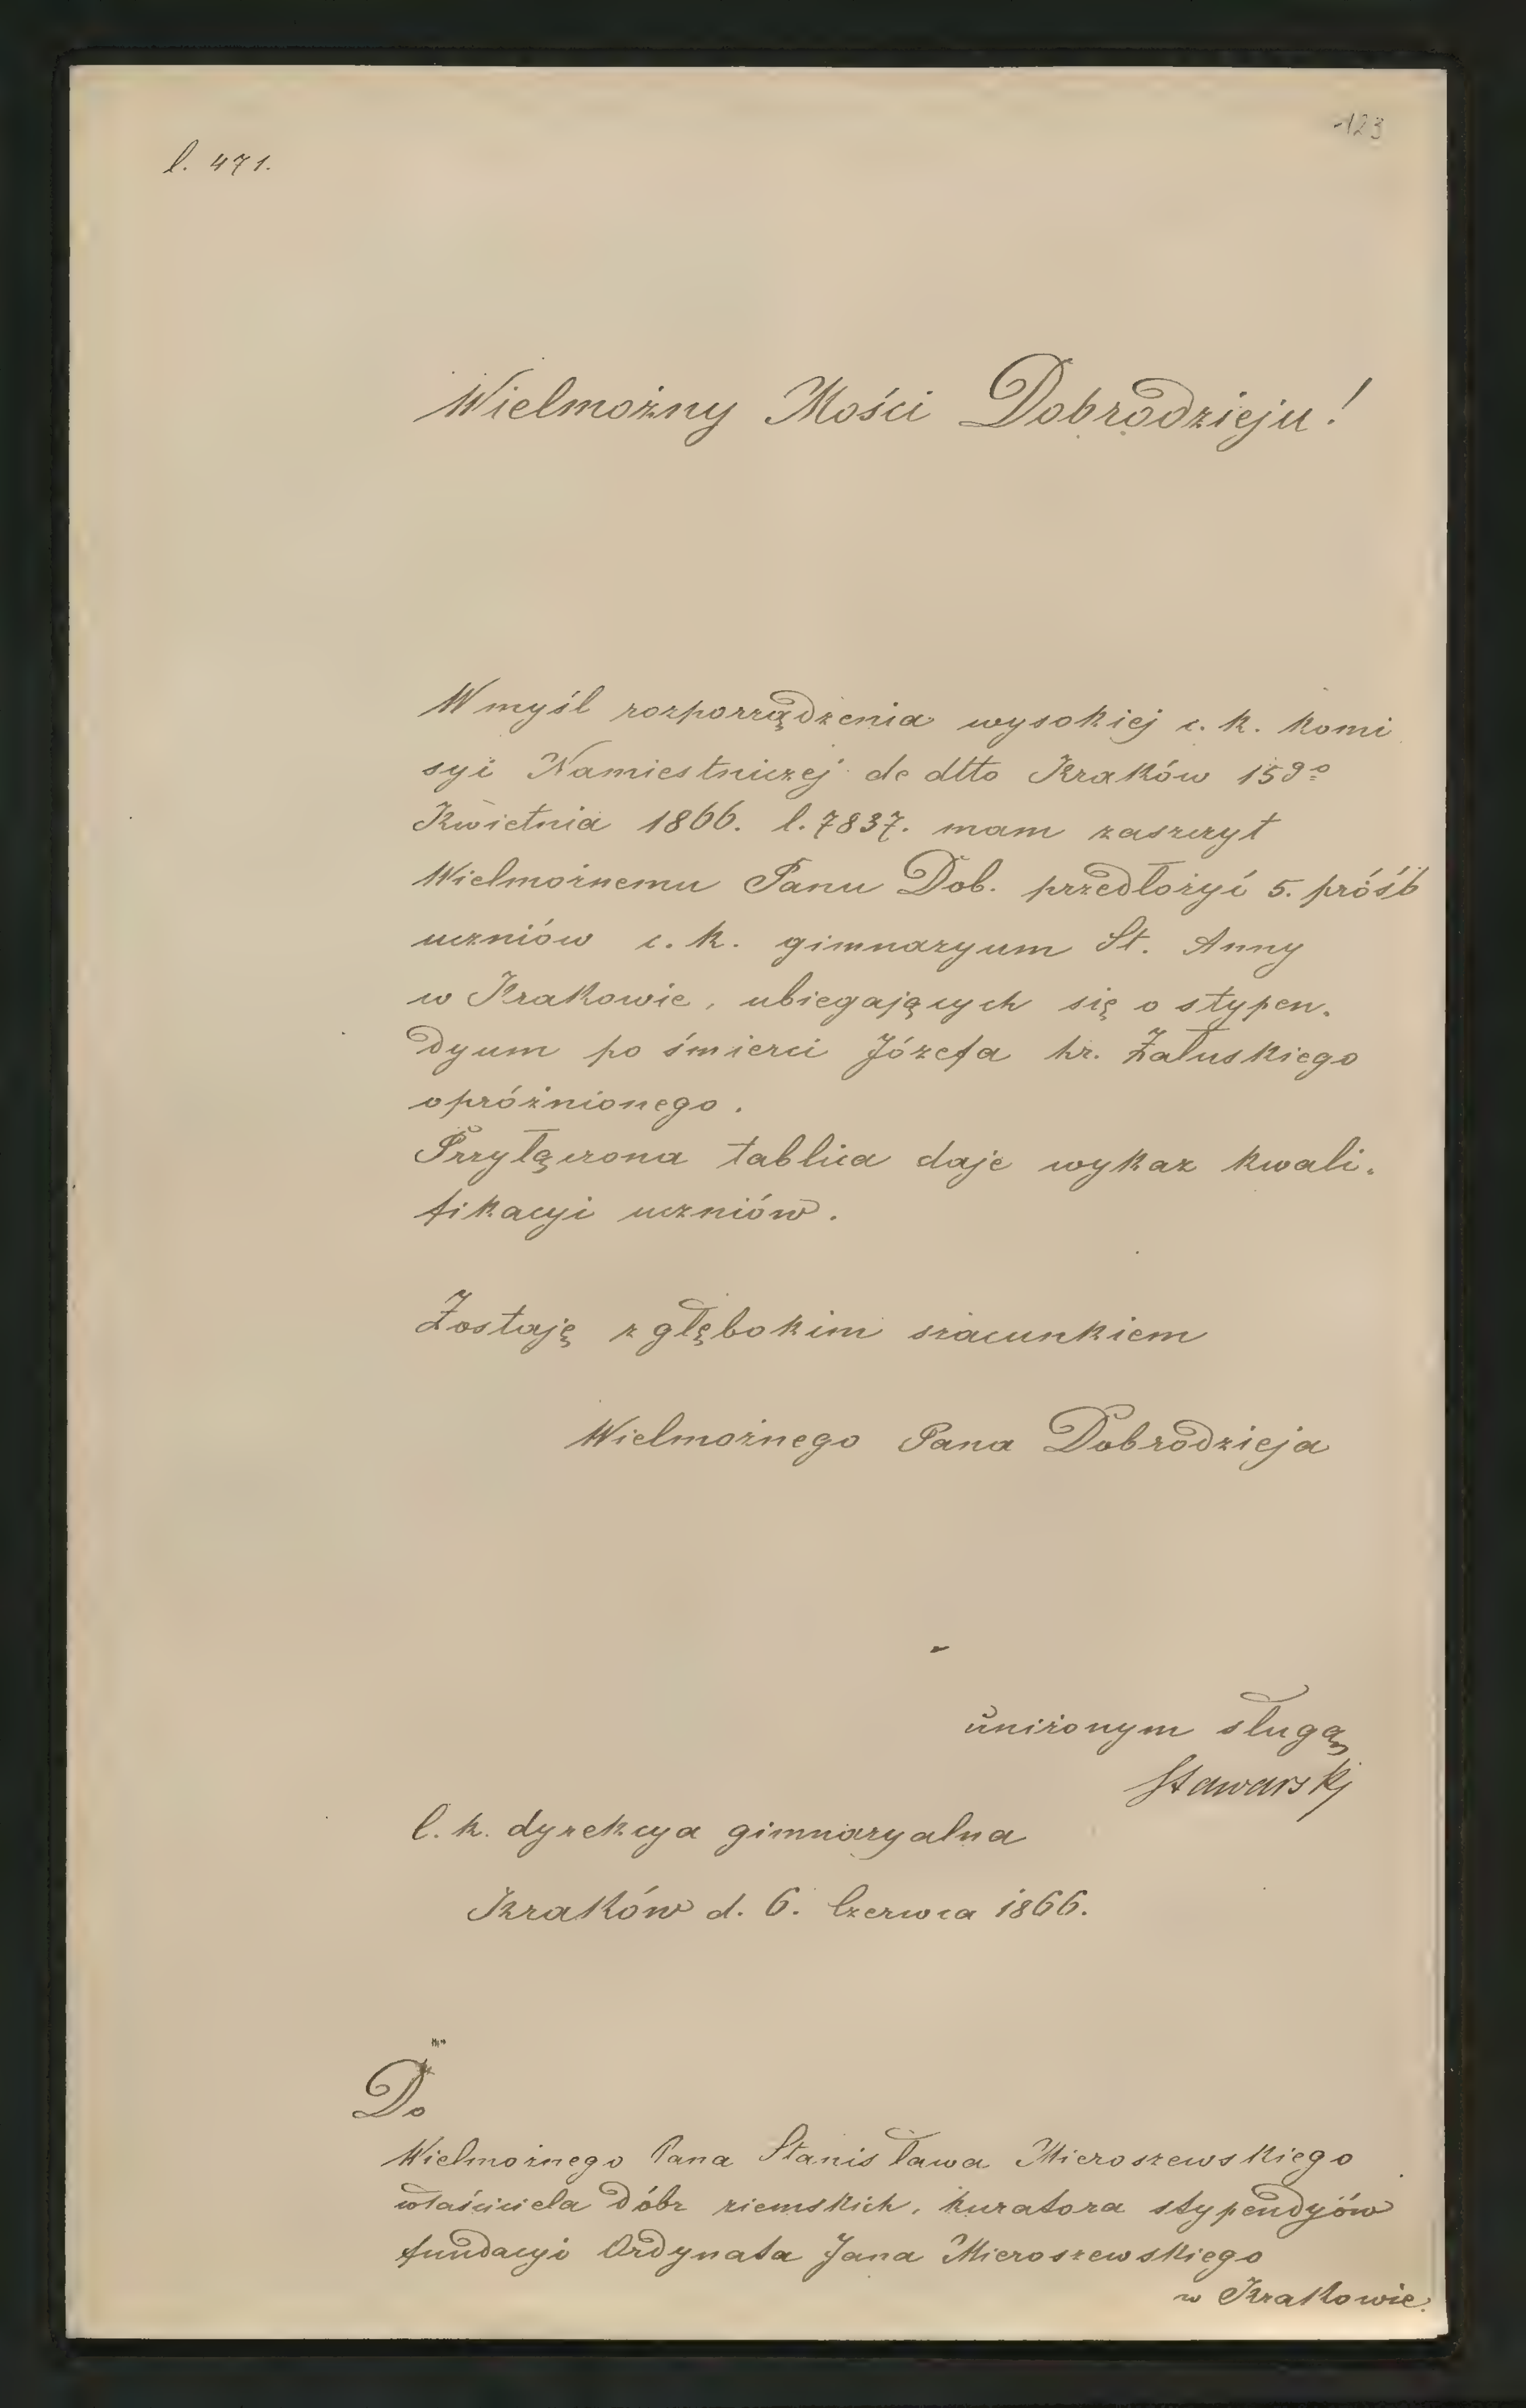 123
l. 471.
Wielmożny Mości Dobrodzieju!
W myśl rozporządzenia wysokiej c. k. komi
syi Namiestniczej de dtto Kraków 15go
Kwietnia 1866. l. 7837. mam zaszczyt
Wielmożnemu Panu Dob. przedłożyć 5. próśb
uczniów c. k. gimnazyum St. Anny
w Krakowie, ubiegających się o stypen.
dyum po śmierci Józefa hr. Załuskiego
opróżnionego.
Przyłączona tablica daje wykaz kwali.
fikacyi uczniów.
Zostaję z głębokim szacunkiem
Wielmożnego Pana Dobrodzieja
uniżonym sługą
Stawarski
C. k. dyrekcya gimnazyalna
Kraków d. 6. Czerwca 1866.
Do
Wielmożnego Pana Stanisława Mieroszewskiego
właściciela dóbr ziemskich, kuratora stypendyów
fundacyi Ordynata Jana Mieroszewskiego
w Krakowie.